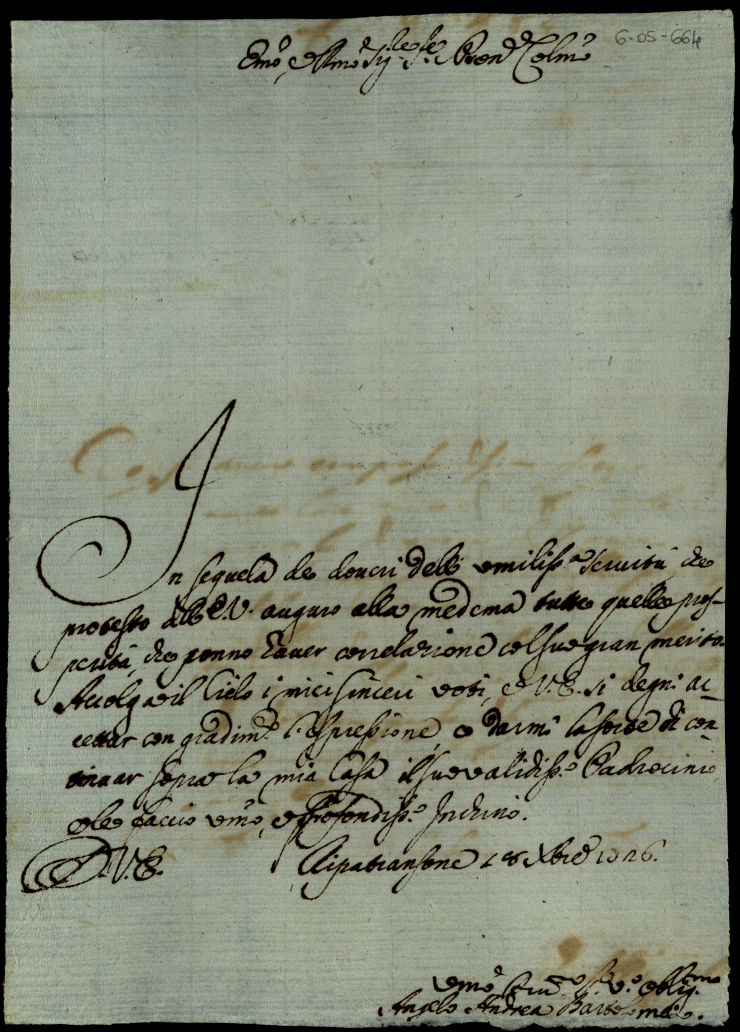 6-05-664
Emo, e Rmo Sig.re Sig.re Pron Colmo
In sequela de doueri della umiliss.a seruitù, che
protesto all'E.V. auguro alla medema tutte quelle pros-
perità, che ponno hauer correlazione col suo gran merito.
Accolga il Cielo i miei sinceri voti, e V.E. si degni ac-
cettar con gradim.to l'espressione, e darmi la sorte di con-
tinuar sopra la mia Casa il suo validiss.o Padrocinio
e le faccio umo, e profondiss.o Inchino.
D.V.E. Ripatransone Xbre 1726.
umo Obligmo
Angelo Andrea Bartolomei